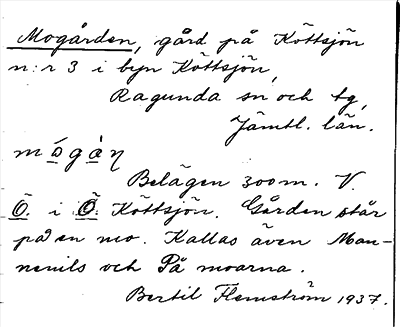 Mogården, gård på Köttsjön
n:r 3 i byn Köttsjön,
Ragunda sn och tg,
Jämtl. län.
mógàŋ
Belägen 300 m. V.
Ö. i Ö. Köttsjön. Gården står
på en mo. Kallas även Man-
nenils och På moarna.
Bertil Flemström 1937.